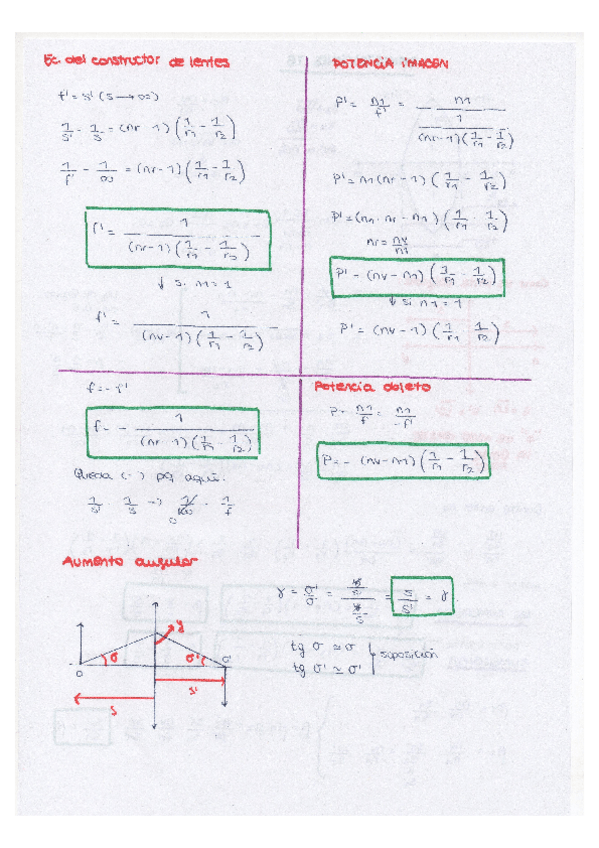 Ec. del constructor de lentes
f' = s' (s → ∞)
1/s' - 1/s = (nr - 1) (1/r1 - 1/r2)
1/f' - 1/∞ = (nr - 1) (1/r1 - 1/r2)
f' = 1 / (nr - 1) (1/r1 - 1/r2)
↓ si n1 = 1
f' = 1 / (nv - 1) (1/r1 - 1/r2)
POTENCIA IMAGEN
P' = n1/f' = n1 / 1/(nr-1)(1/r1 - 1/r2)
P' = n1 (nr - 1) (1/r1 - 1/r2)
P' = (n1 · nr - n1) (1/r1 - 1/r2)
nr = nv/n1
P' = (nv - n1) (1/r1 - 1/r2)
↓ si n1 = 1
P' = (nv - 1) (1/r1 - 1/r2)
f = - f'
f = - 1 / (nr - 1) (1/r1 - 1/r2)
Queda (-) por aquí:
1/s' - 1/s → 1/∞ - 1/f
0
Potencia objeto
P = n1/f = n1/-f'
P = - (nv - n1) (1/r1 - 1/r2)
Aumento angular
γ = σ'/σ = y/s' / y/s = s/s' = γ
tg σ ≃ σ
tg σ' ≃ σ'
suposición
y
σ
σ'
O
O'
s'
s